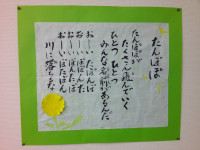 たんぽぽ
たんぽぽが
たくさん飛んでいく
ひとつひとつ
みんな名前があるんだ
おーいたぽんぽ
おーいぽぽんた
おーいぽんたぽ
おーいぽたぽん
川に落ちるな